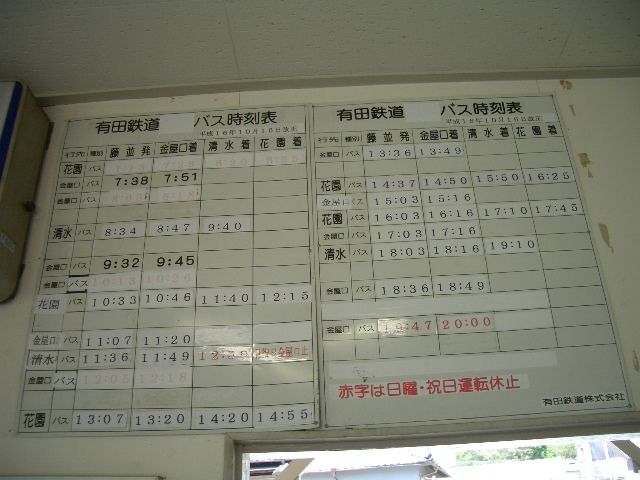 有田鉄道 バス時刻表
平成16年10月16日改正
行先 種別 藤並発 金屋口着 清水着 花園着
花園 バス 8:20 8:55
金屋口 バス 7:38 7:51
金屋口 バス 8:05 8:18
清水 バス 8:34 8:47 9:40
金屋口 バス 9:32 9:45
金屋口 バス 10:13 10:26
花園 バス 10:33 10:46 11:40 12:15
金屋口 バス 11:07 11:20
清水 バス 11:36 11:49 12:39
金屋口 バス 12:05 12:18
花園 バス 13:07 13:20 14:20 14:55
有田鉄道 バス時刻表
平成16年10月16日改正
行先 種別 藤並発 金屋口着 清水着 花園着
金屋口 バス 13:36 13:49
花園 バス 14:37 14:50 15:50 16:25
金屋口 バス 15:03 15:16
花園 バス 16:03 16:16 17:10 17:45
金屋口 バス 17:03 17:16
清水 バス 18:03 18:16 19:10
金屋口 バス 18:36 18:49
金屋口 バス 19:47 20:00
赤字は日曜・祝日運転休止
有田鉄道株式会社